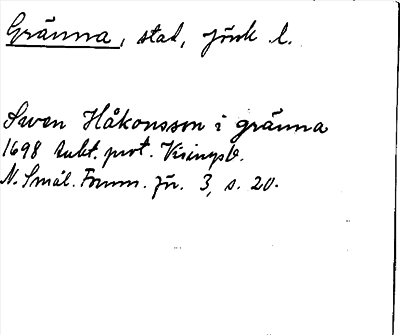 Gränna, stad, Jönk l.
Swen Håkonsson i gränna
1698 Aukt. prot. Visingsb.
N. Smål. Fornm. för. 3, s. 20.